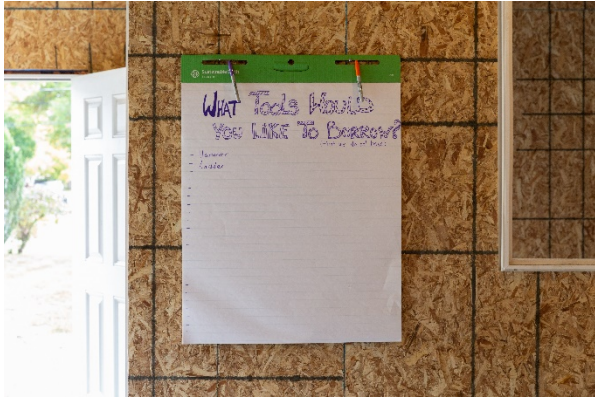 WHAT Tools Would
YOU LIKE To BORROW?
- Hammer
- Ladder